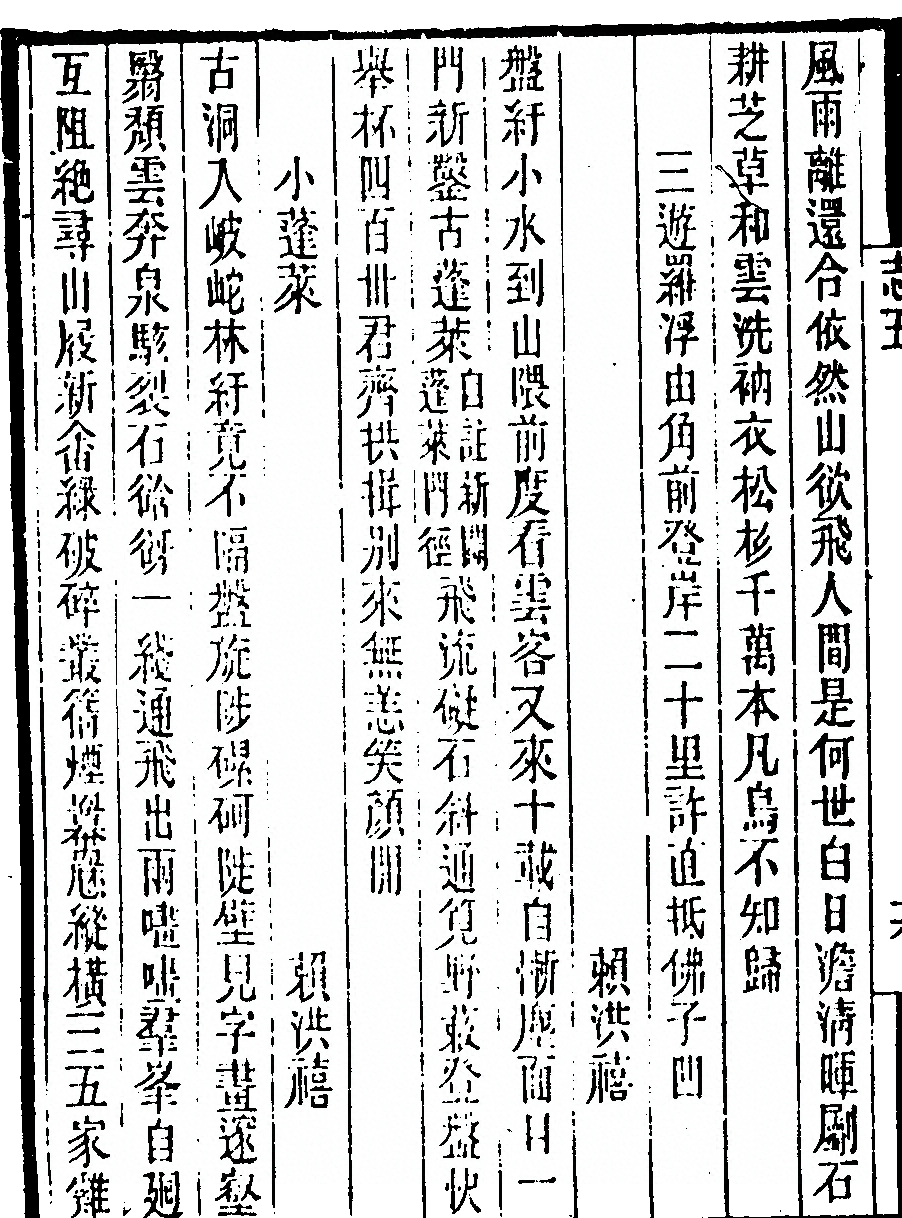 風雨離還合依然山欲飛人間是何世白日澹清暉劚石
耕芝草和雲洗衲衣松杉千萬本凡鳥不知歸
三遊羅浮由角前登岸二十里許直抵佛子凹
賴洪禧
盤紆小水到山隈前度看雲客又來十載自慚塵面目一
門新鑿古蓬萊自註新開蓬萊門徑飛流礙石斜通筧野蔌登盤快
舉杯四百卌君齊拱揖別來無恙笑顏開
小蓬萊 賴洪禧
古洞入岐㟎林紆竟不隔盤旋陟磥砢陡壁見字畫邃壑
翳頹雲奔泉駭裂石徐徐一綫通飛出雨嘈嘈羣峯自迴
互阻絶尋山屐新畬綠破碎叢篠煙羃䍥縱橫三五家雞